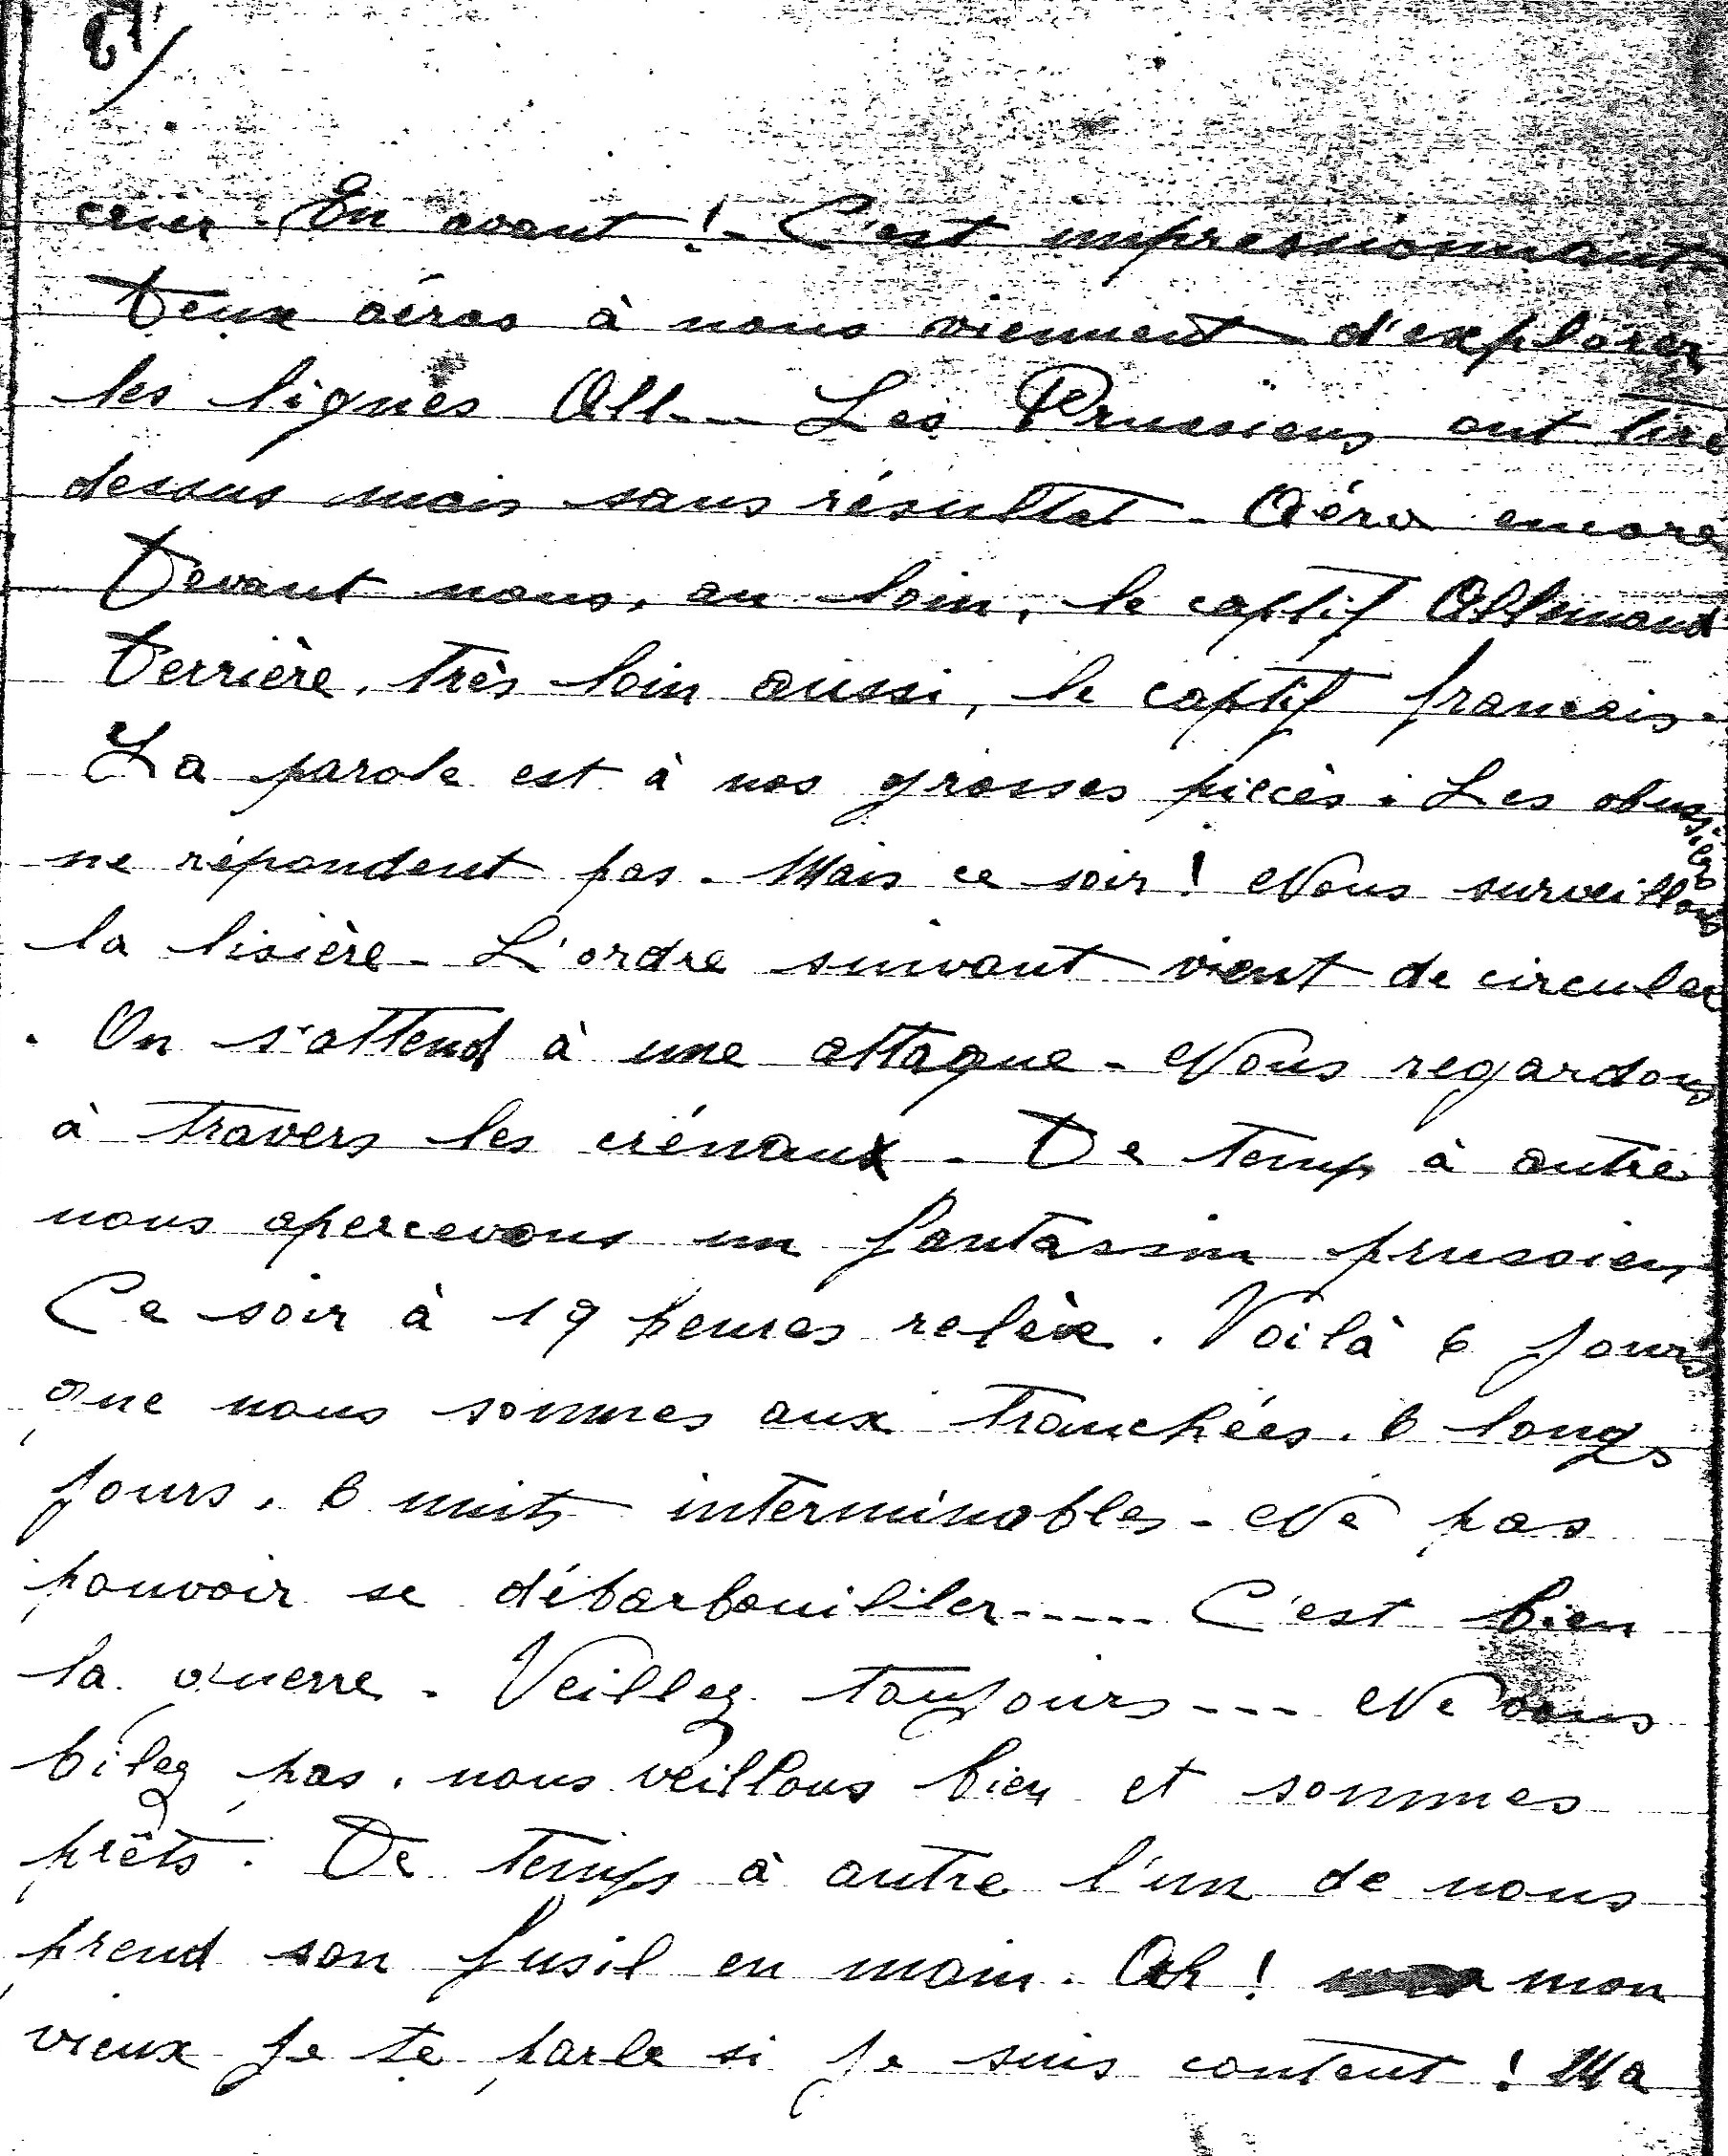 cer. En avant ! - C'est impressionnant
Deux aéros à nous viennent d'explorer
les lignes All... Les Prussiens ont tiré
dessus mais sans résultat - Aéro encore
Devant nous, au loin, le captif Allemand
Derrière, très loin aussi, le captif francais.
La parole est à nos grosses pièces. Les obusiers
ne répondent pas. Mais ce soir ! Nous surveillons
la lisière - L'ordre suivant vient de circuler
. On s'attend à une attaque - Nous regardons
à travers les crénaux. De temps à autre
nous apercevons un fantassin prussien
Ce soir à 19 heures relève. Voilà 6 jours
que nous sommes aux tranchées. 6 longs
jours, 6 nuits interminables - Ne pas
pouvoir se débarbouiller..... C'est bien
la guerre. Veillez toujours --- Ne vous
bilez pas, nous veillons bien et sommes
prêts. De temps à autre l'un de nous
prend son fusil en main. Ah ! mon
vieux je te parle si je suis content ! Ma